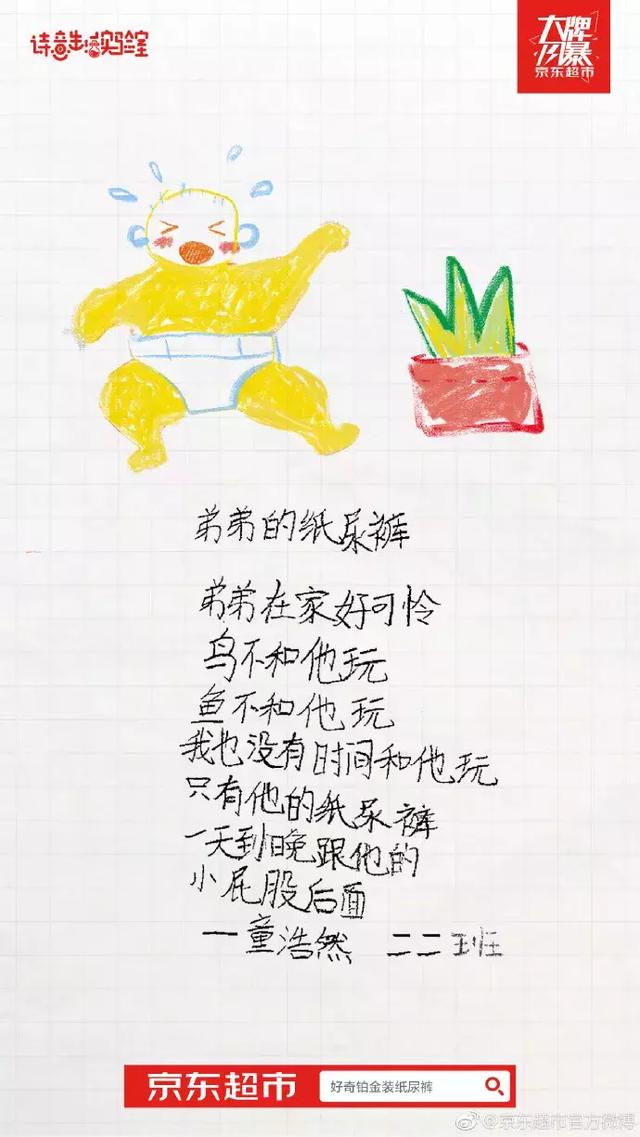 诗童生活实验室
大牌
风暴
京东超市
弟弟的纸尿裤
弟弟在家好可怜
鸟不和他玩
鱼不和他玩
我也没有时间和他玩
只有他的纸尿裤
一天到晚跟他的
小屁股后面
一童浩然 二二班
京东超市 好奇铂金装纸尿裤
@京东超市官方微博